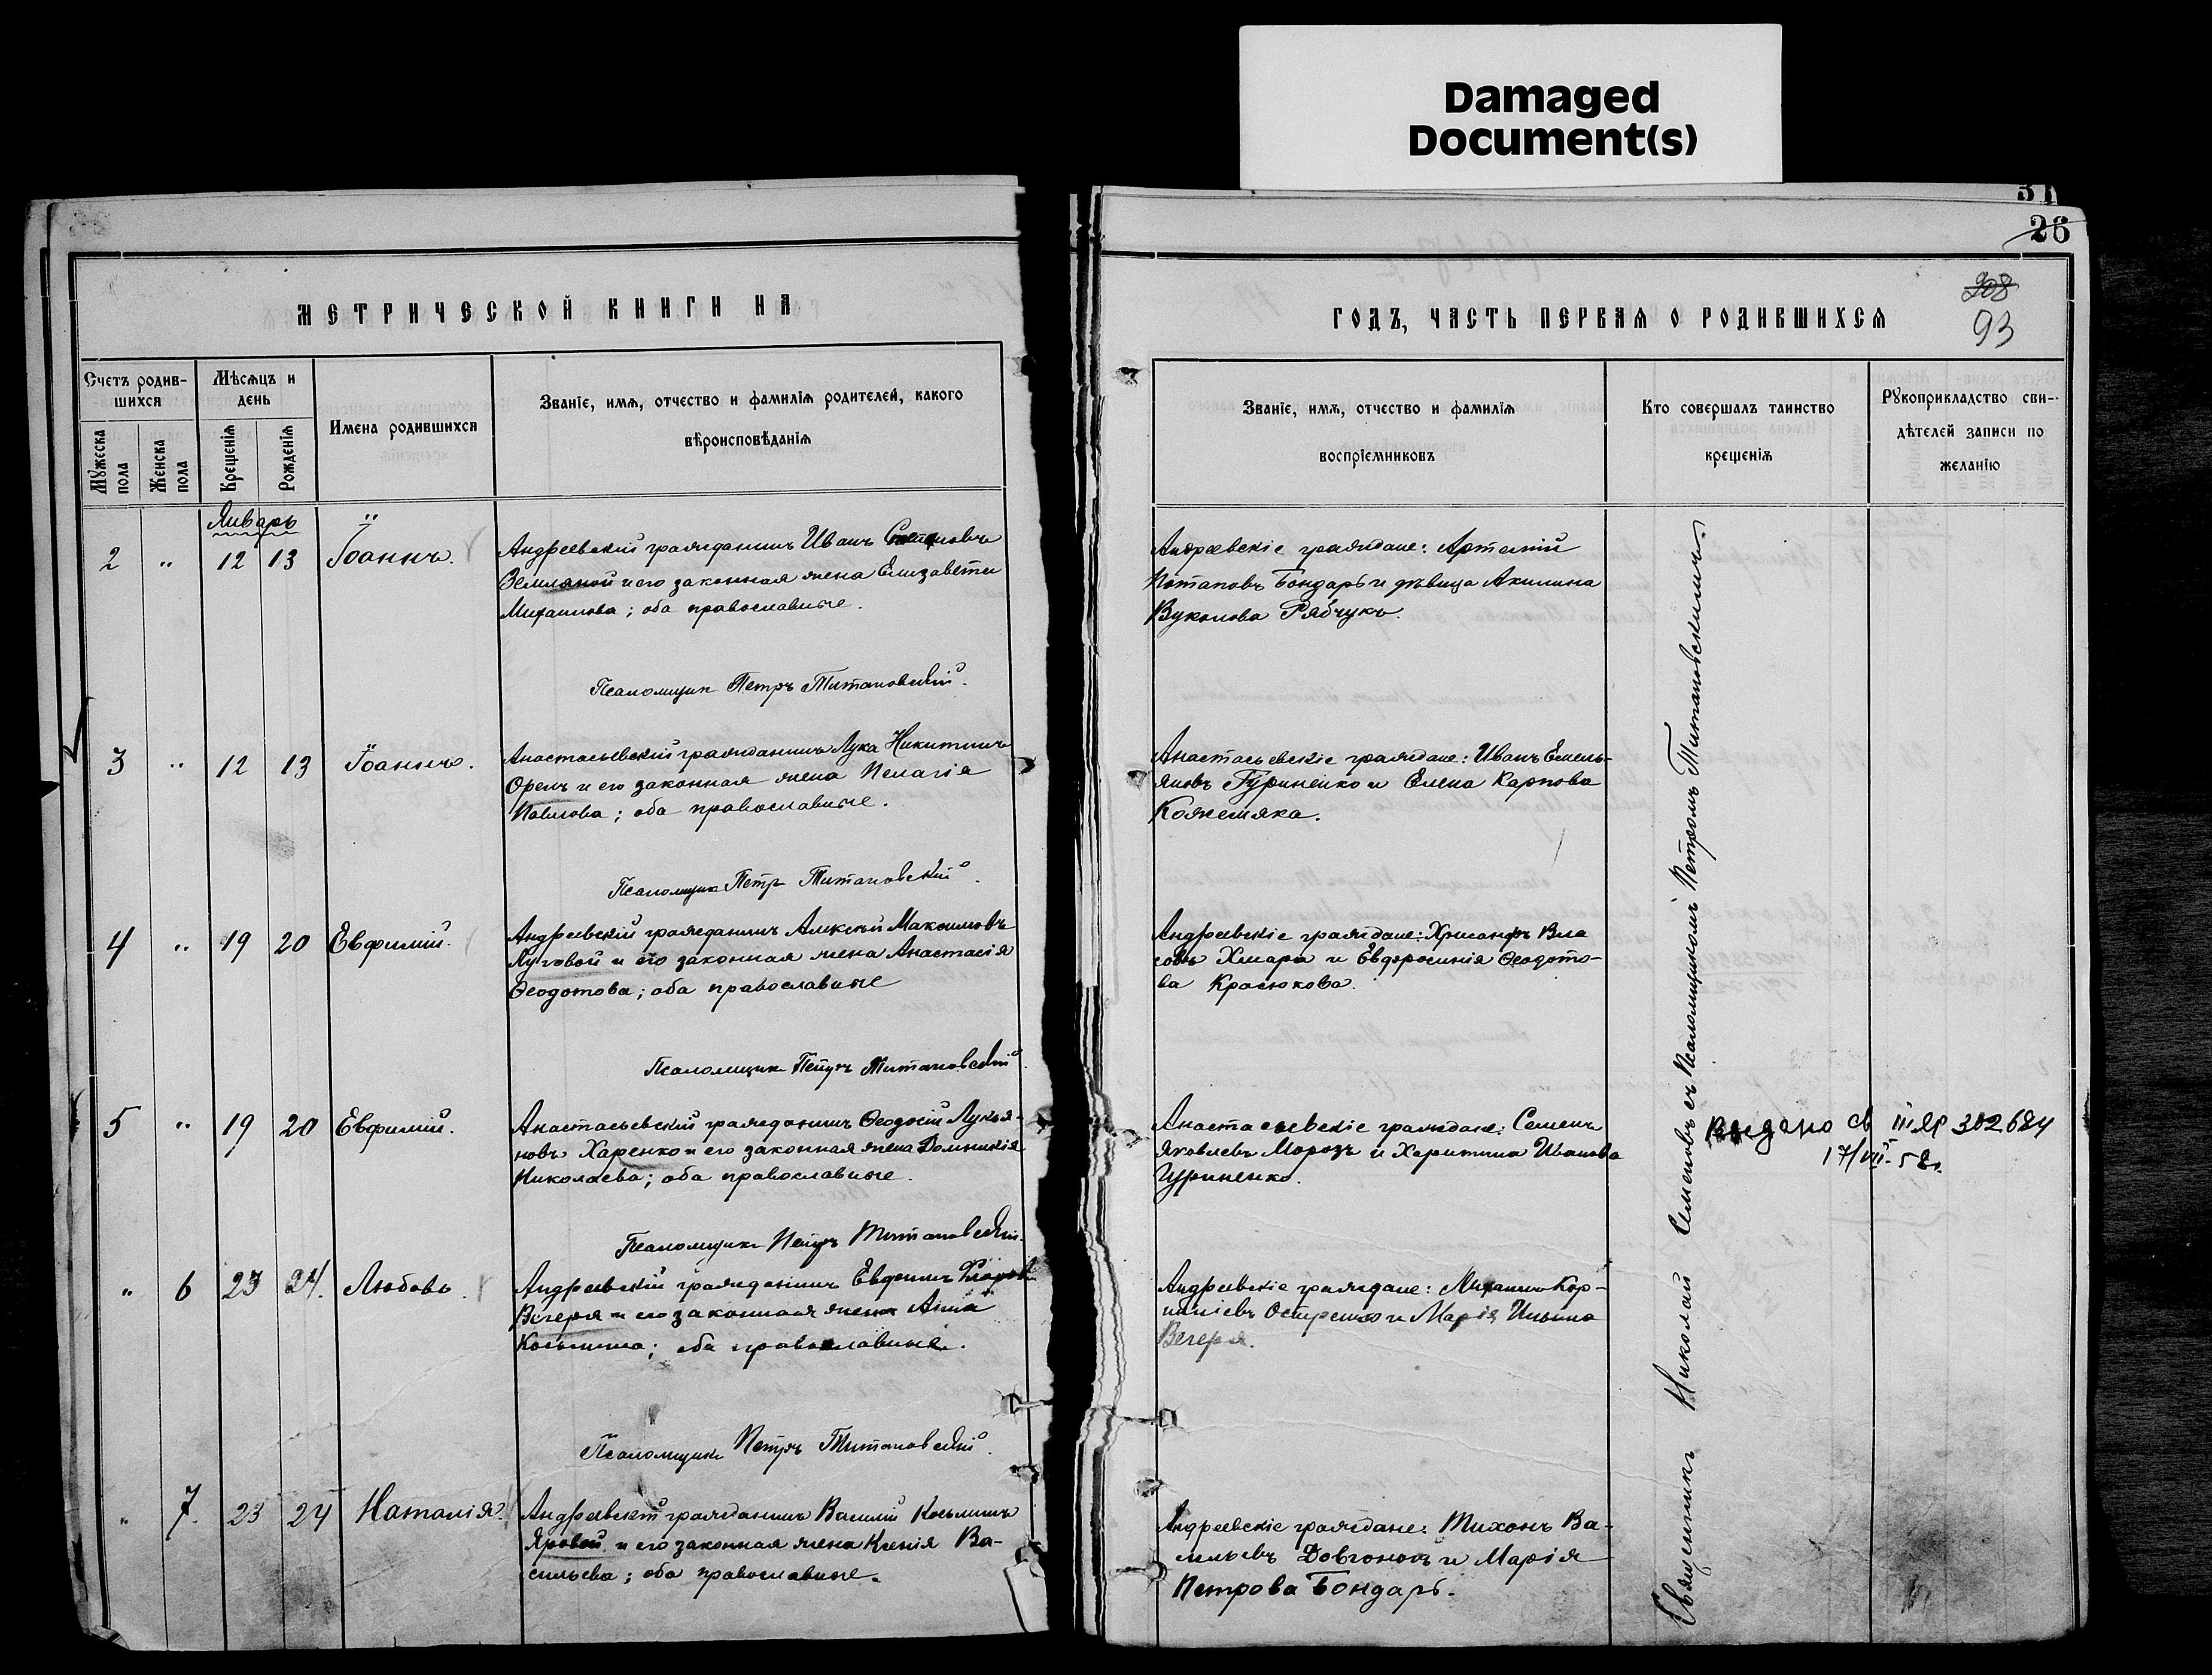 Damaged
Document(s)
31
26
308
93
МЕТРИЧЕСКОЙ КНИГИ НА
ГОДЪ, ЧАСТЬ ПЕРВАЯ О РОДИВШИХСЯ
Счетъ родив-
шихся
Мужеска
пола
Женска
пола
Мѣсяцъ и
день
Крещенія
Рожденія
Имена родившихся
Званіе, имя, отчество и фамилія родителей, какого
вѣроисповѣданія
Званіе, имя, отчество и фамилія
воспріемниковъ
Кто совершалъ таинство
крещенія
Рукоприкладство сви-
дѣтелей записи по
желанію
Январь
2 " 12 13 Іоаннъ.
Андреевскій гражданинъ Иванъ
Земляной и его законная жена Елизавета
Михаилова; оба православные.
Андреевскіе граждане: Артемій
Потаповъ Бондарь и дѣвица Акилина
Вуколова Рябчукъ.
Псаломщик Петръ Титановскій.
3 " 12 13 Іоаннъ.
Анастасьевскій гражданинъ Лука Никитинъ
Орелъ и его законная жена Пелагія
Павлова; оба православные.
Анастасьевскіе граждане: Иванъ Емель-
яновъ Гуриненко и Елена Карпова
Кожемяка.
Псаломщик Петръ Титановскій.
4 " 19 20 Евфимій.
Андреевскій гражданинъ Алексѣй Максимовъ
Луговой и его законная жена Анастасія
Ѳеодотова; оба православные
Андреевскіе граждане: Хрисанфъ Вла
совъ Хмара и Евфросинія Ѳеодото-
ва Красюкова.
Псаломщик Петръ Титановскій
5 " 19 20 Евфимій.
Анастасьевскій гражданинъ Ѳеодосій Лукья-
новъ Харенко и его законная жена Домникія
Николаева; оба православные.
Анастасьевскіе граждане: Семенъ
Яковлевъ Морозъ и Харитина Иванова
Гуриненко.
видано св III ЯР 302684
17/VII-58г.
Псаломщик Петръ Титановскій.
" 6 23 24. Любовь.
Андреевскій гражданинъ Евфимъ
Вечеря и его законная жена Анна
Косьмина; оба православные.
Андреевскіе граждане: Михаилъ Кор-
ниліевъ и Марія Ильина
Вечеря.
Псаломщик Петръ Титановскій.
" 7. 23 24 Наталія.
Андреевскій гражданинъ Василій Косьминъ
Яровой и его законная жена Ксенія Ва-
сильева; оба православные.
Андреевскіе граждане: Тихонъ Ва-
сильевъ и Марія
Петрова Бондарь.
Священникъ Николай Семеновъ съ Псаломщикомъ Петромъ Титановскимъ.